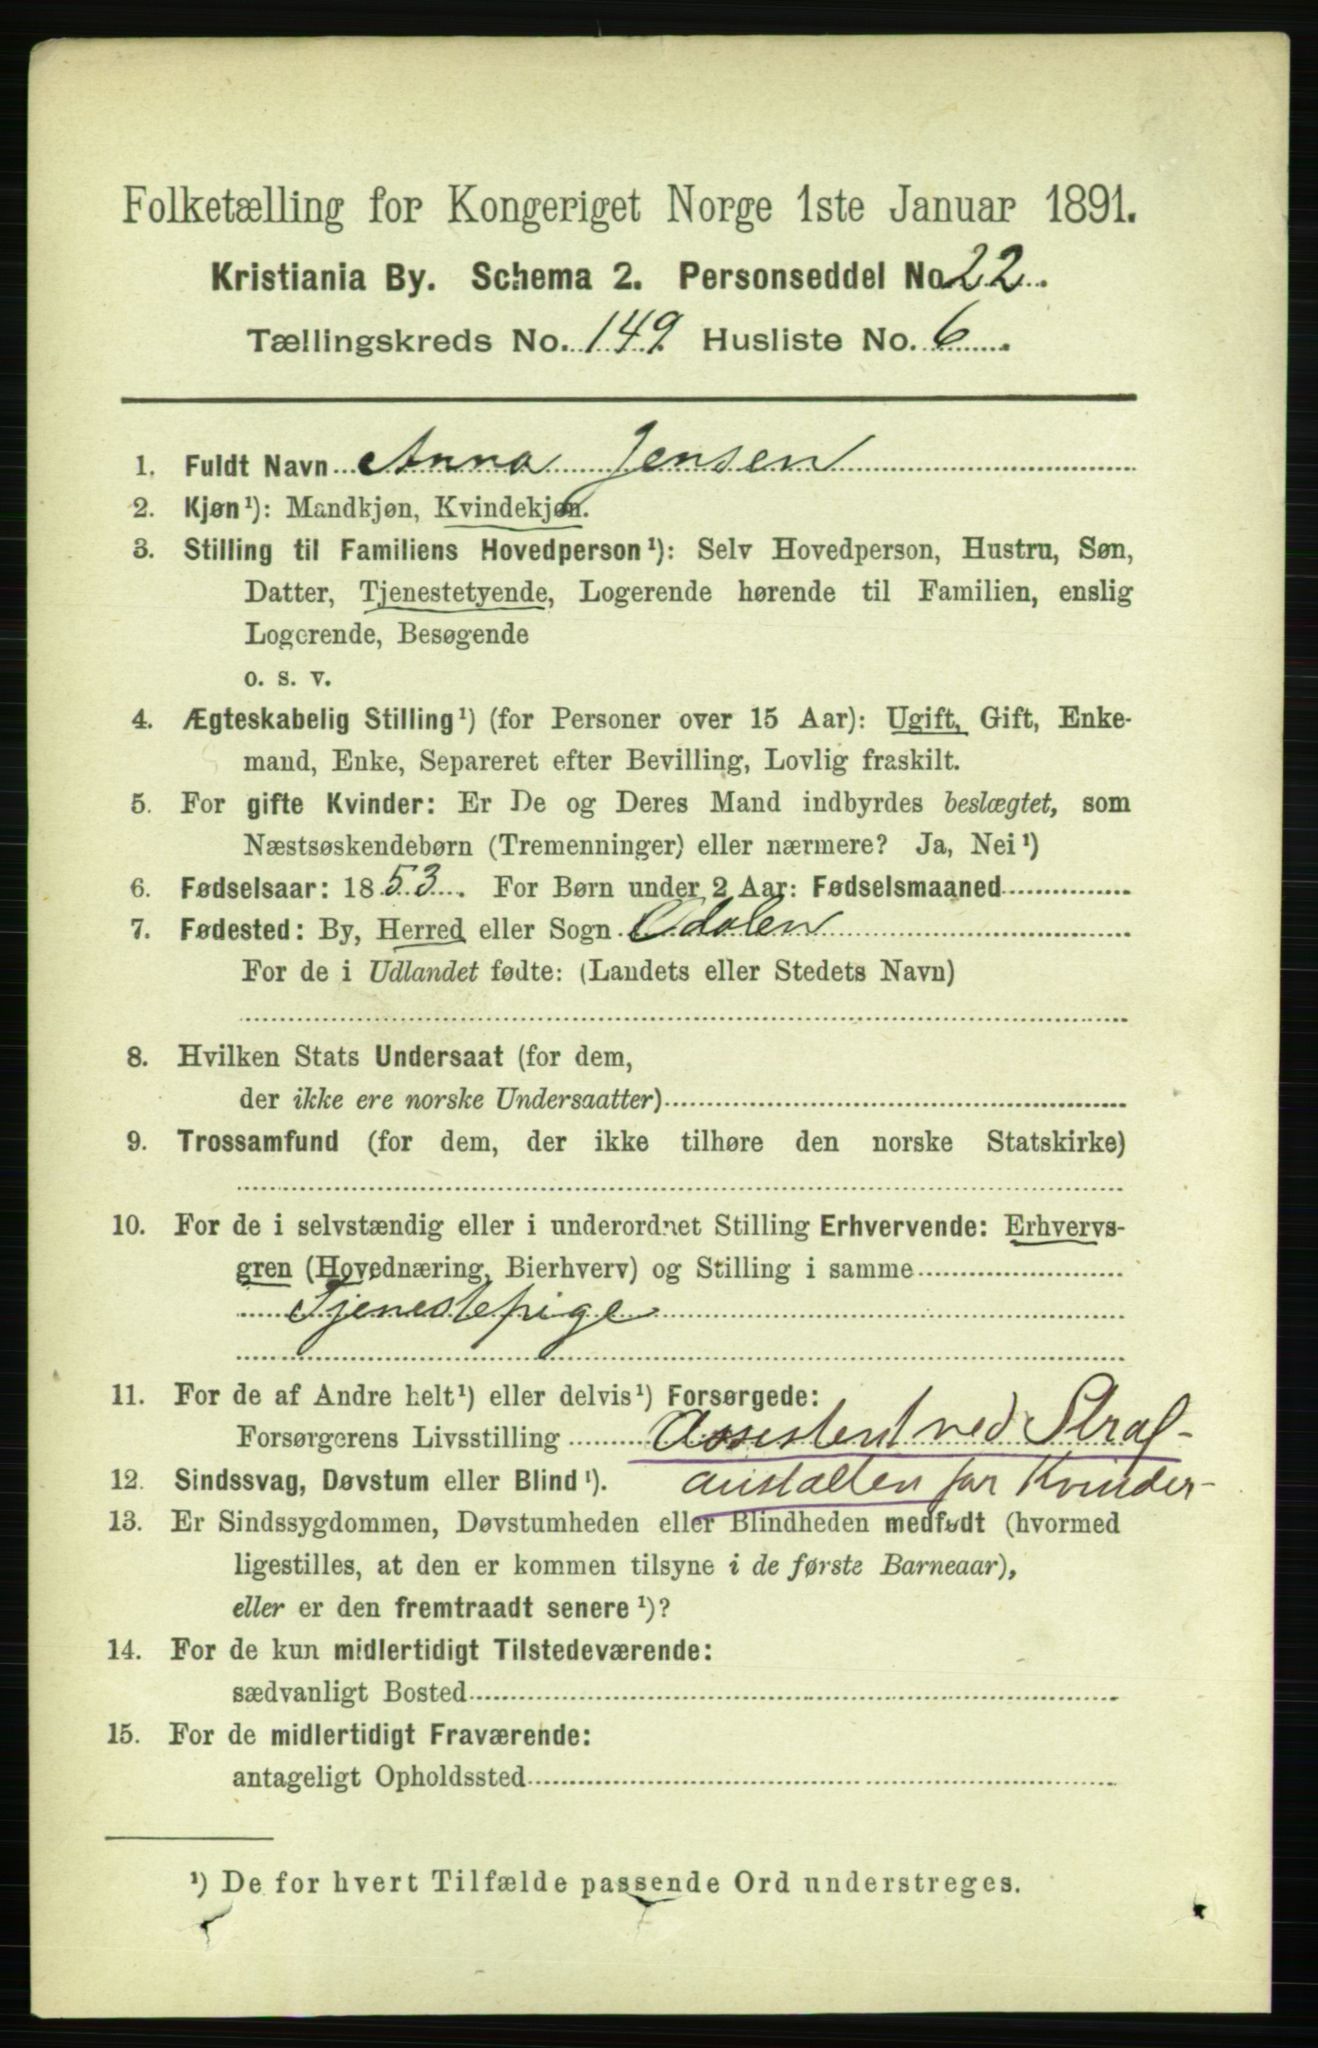 Folketælling for Kongeriget Norge 1ste Januar 1891.
Kristiania By. Schema 2. Personseddel No 22.
Tællingskreds No. 149 Husliste No. 6.
1. Fuldt Navn Anna Jensen
2. Kjøn¹): Mandkjøn, Kvindekjøn.
3. Stilling til Familiens Hovedperson¹): Selv Hovedperson, Hustru, Søn,
Datter, Tjenestetyende, Logerende hørende til Familien, enslig
Logerende, Besøgende
o. s. v.
4. Ægteskabelig Stilling¹) (for Personer over 15 Aar): Ugift, Gift, Enke-
mand, Enke, Separeret efter Bevilling, Lovlig fraskilt.
5. For gifte Kvinder: Er De og Deres Mand indbyrdes beslægtet, som
Næstsøskendebørn (Tremenninger) eller nærmere? Ja, Nei¹)
6. Fødselsaar: 1853. For Børn under 2 Aar: Fødselsmaaned
7. Fødested: By, Herred eller Sogn Odalen
For de i Udlandet fødte: (Landets eller Stedets Navn)
8. Hvilken Stats Undersaat (for dem,
der ikke ere norske Undersaatter)
9. Trossamfund (for dem, der ikke tilhøre den norske Statskirke)
10. For de i selvstændig eller i underordnet Stilling Erhvervende: Erhvervs-
gren (Hovednæring, Bierhverv) og Stilling i samme
Tjenestepige
11. For de af Andre helt¹) eller delvis¹) Forsørgede:
Forsørgerens Livsstilling Assistent ved Straf-
12. Sindssvag, Døvstum eller Blind¹). anstalten for Kvinder-
13. Er Sindssygdommen, Døvstumheden eller Blindheden medfødt (hvormed
ligestilles, at den er kommen tilsyne i de første Barneaar),
eller er den fremtraadt senere¹)?
14. For de kun midlertidigt Tilstedeværende:
sædvanligt Bosted
15. For de midlertidigt Fraværende:
antageligt Opholdssted
¹) De for hvert Tilfælde passende Ord understreges.